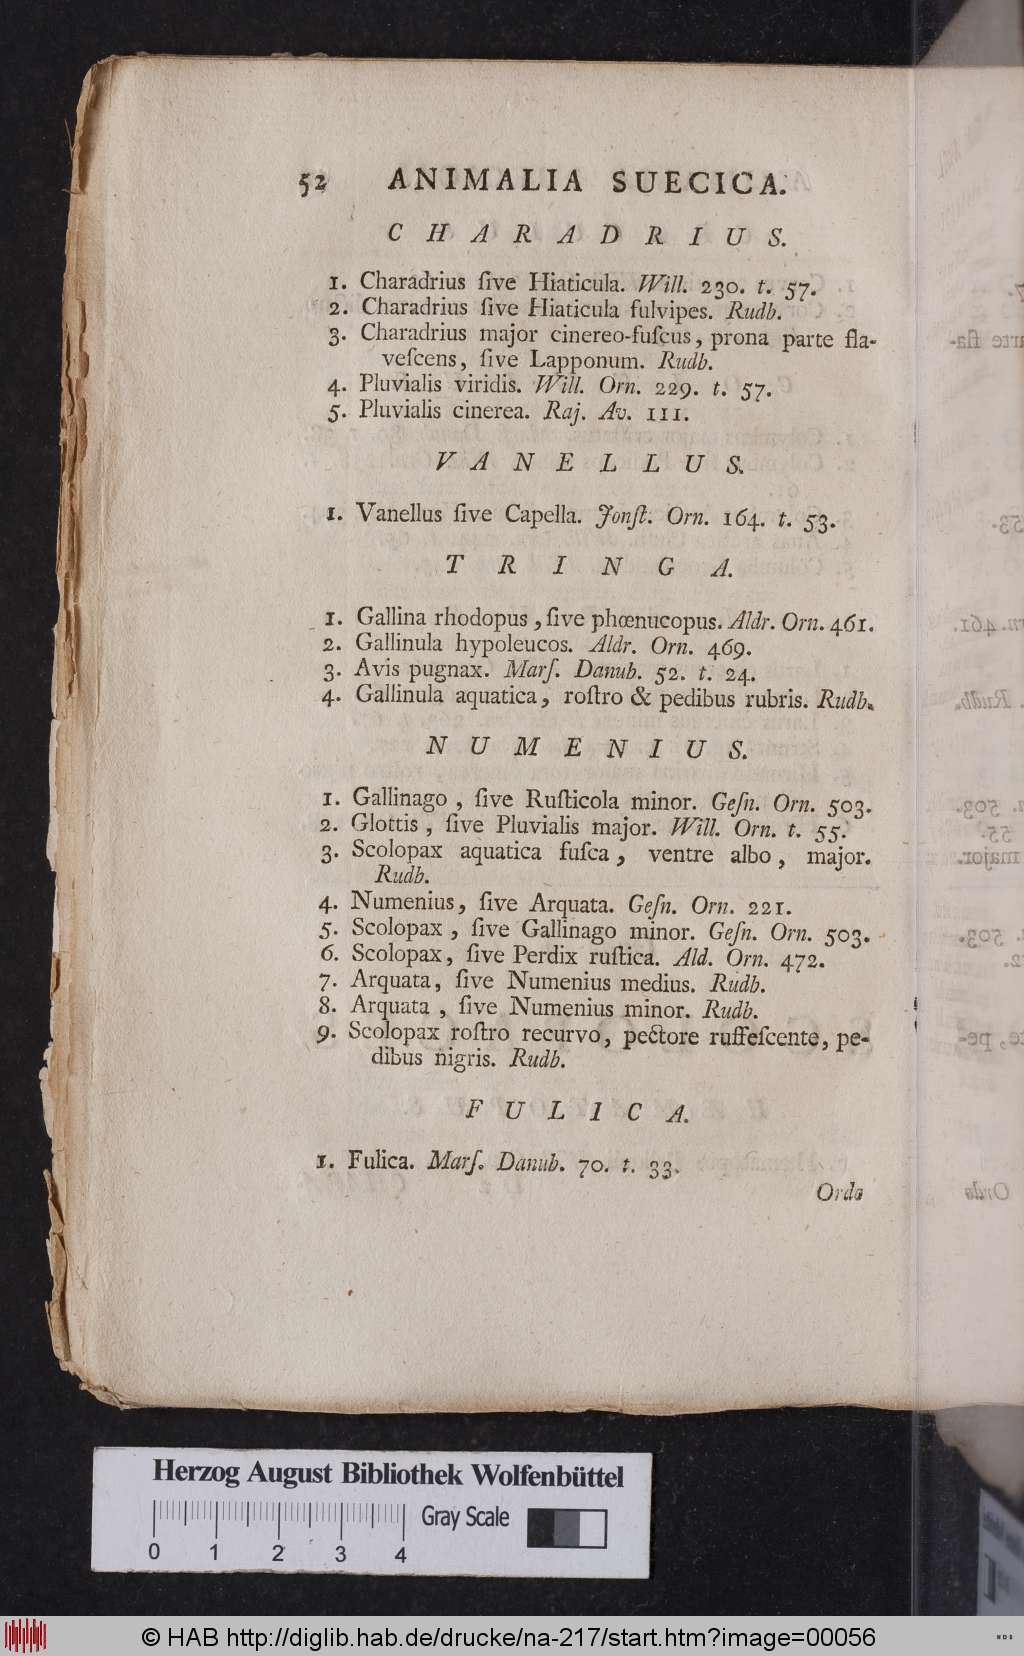 52 ANIMALIA SUECICA.
CHARADRIUS.
1. Charadrius ſive Hiaticula. Will. 230. t. 57.
2. Charadrius ſive Hiaticula fulvipes. Rudb.
3. Charadrius major cinereo-fuſcus, prona parte fla-
veſcens, ſive Lapponum. Rudb.
4. Pluvialis viridis. Will. Orn. 229. t. 57.
5. Pluvialis cinerea. Raj. Av. 111.
VANELLUS.
1. Vanellus ſive Capella. Jonſt. Orn. 164. t. 53.
TRINGA.
1. Gallina rhodopus, ſive phœnucopus. Aldr. Orn. 461.
2. Gallinula hypoleucos. Aldr. Orn. 469.
3. Avis pugnax. Marſ. Danub. 52. t. 24.
4. Gallinula aquatica, roſtro & pedibus rubris. Rudb.
NUMENIUS.
1. Gallinago, ſive Ruſticola minor. Geſn. Orn. 503.
2. Glottis, ſive Pluvialis major. Will. Orn. t. 55.
3. Scolopax aquatica fuſca, ventre albo, major.
Rudb.
4. Numenius, ſive Arquata. Geſn. Orn. 221.
5. Scolopax, ſive Gallinago minor. Geſn. Orn. 503.
6. Scolopax, ſive Perdix ruſtica. Ald. Orn. 472.
7. Arquata, ſive Numenius medius. Rudb.
8. Arquata, ſive Numenius minor. Rudb.
9. Scolopax roſtro recurvo, pectore ruffeſcente, pe-
dibus nigris. Rudb.
FULICA.
1. Fulica. Marſ. Danub. 70. t. 33.
Ordo
Herzog August Bibliothek Wolfenbüttel
Gray Scale
0 1 2 3 4
© HAB http://diglib.hab.de/drucke/na-217/start.htm?image=00056